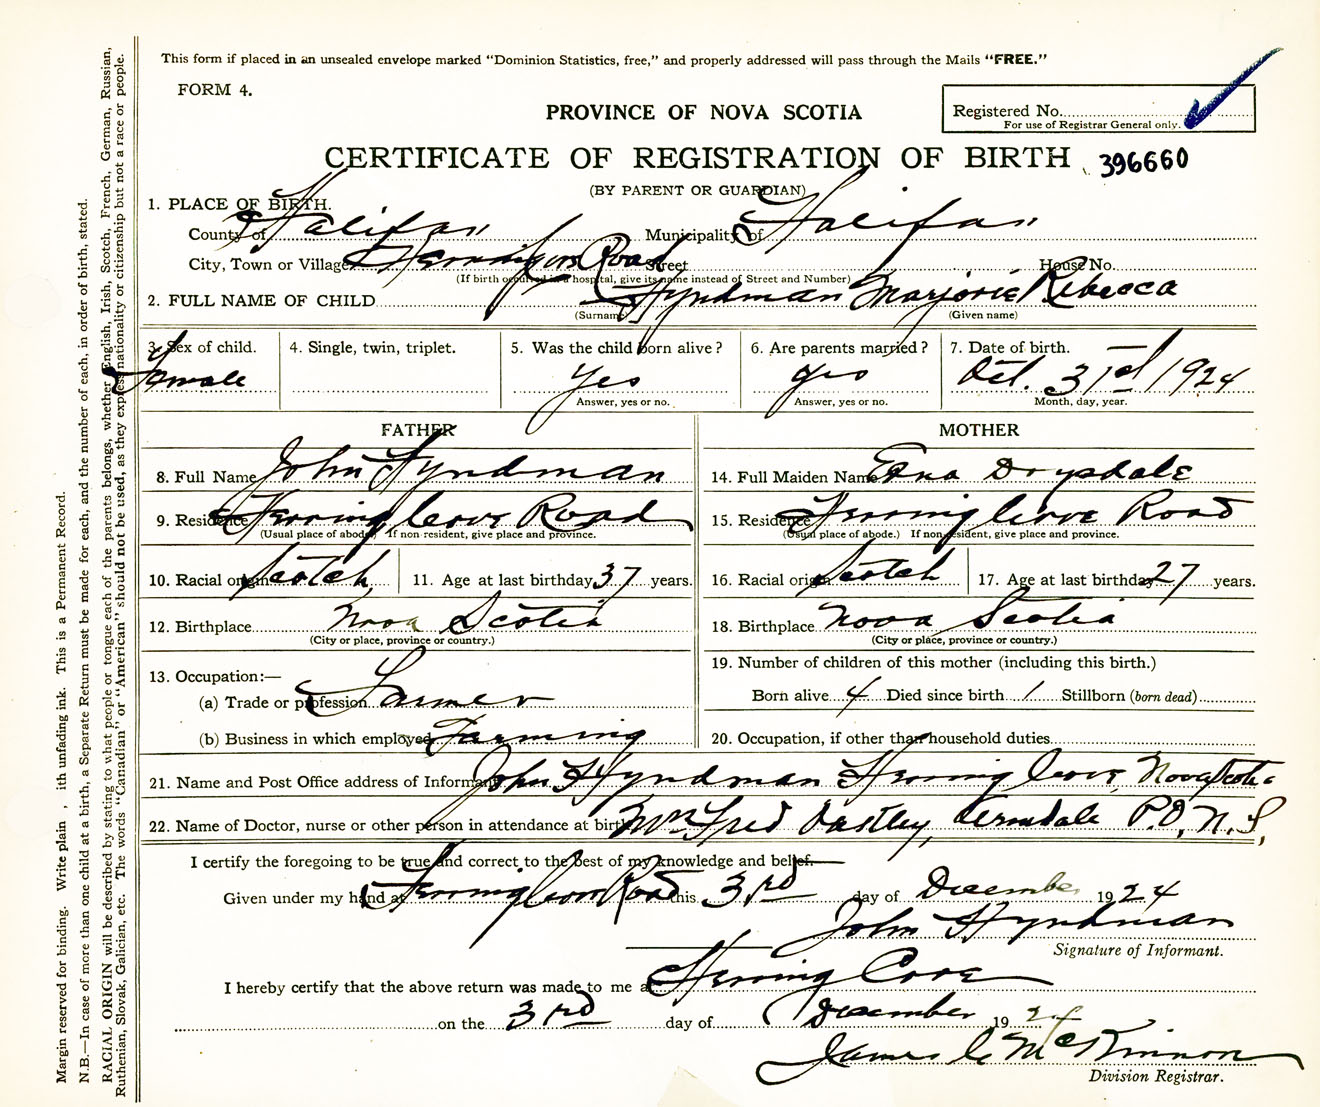 This form if placed in an unsealed envelope marked "Dominion Statistics, free," and properly addressed will pass through the Mails "FREE."
FORM 4.
PROVINCE OF NOVA SCOTIA
Registered No.
For use of Registrar General only.
CERTIFICATE OF REGISTRATION OF BIRTH 396660
(BY PARENT OR GUARDIAN)
1. PLACE OF BIRTH.
County of Halifax Municipality of Halifax
City, Town or Village Herring Cove Road Street House No.
(If birth occurred in a hospital, give its name instead of Street and Number)
2. FULL NAME OF CHILD Hyndman Marjorie Rebecca
(Surname) (Given name)
3. Sex of child. 4. Single, twin, triplet. 5. Was the child born alive? 6. Are parents married? 7. Date of birth.
Female yes yes Oct. 31st 1924
Answer, yes or no. Answer, yes or no. Month, day, year.
FATHER MOTHER
8. Full Name John Hyndman 14. Full Maiden Name Edna Drysdale
9. Residence Herring Cove Road 15. Residence Herring Cove Road
(Usual place of abode.) If non-resident, give place and province. (Usual place of abode.) If non-resident, give place and province.
10. Racial origin Scotch 11. Age at last birthday 37 years. 16. Racial origin Scotch 17. Age at last birthday 27 years.
12. Birthplace Nova Scotia 18. Birthplace Nova Scotia
(City or place, province or country.) (City or place, province or country.)
13. Occupation:— 19. Number of children of this mother (including this birth.)
(a) Trade or profession Farmer Born alive 4 Died since birth 1 Stillborn (born dead)
(b) Business in which employed Farming 20. Occupation, if other than household duties
21. Name and Post Office address of Informant John Hyndman Herring Cove Nova Scotia
22. Name of Doctor, nurse or other person in attendance at birth Mrs Fred P.O. N.S,
I certify the foregoing to be true and correct to the best of my knowledge and belief.
Given under my hand at Herring Cove Road this 3rd day of December 1924
John Hyndman
Signature of Informant.
I hereby certify that the above return was made to me at Herring Cove
on the 3rd day of December 1924
James C McKinnon
Division Registrar.
Margin reserved for binding. Write plain , ith unfading ink. This is a Permanent Record.
N.B.—In case of more than one child at a birth, a Separate Return must be made for each, and the number of each, in order of birth, stated.
RACIAL ORIGIN will be described by stating to what people or tongue each of the parents belongs, whether English, Irish, Scotch, French, German, Russian,
Ruthenian, Slovak, Galician, etc. The words "Canadian" or "American" should not be used, as they express nationality or citizenship but not a race or people.